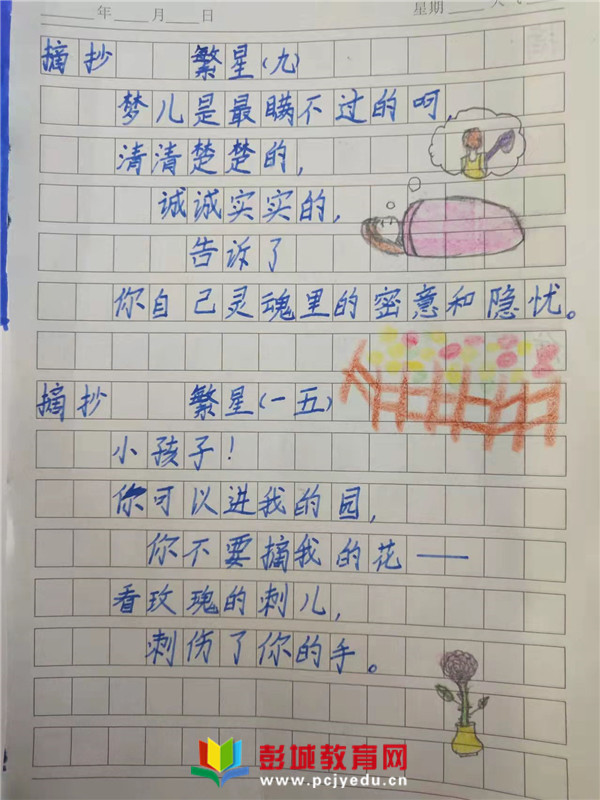 年 月 日 星期 天气
摘抄 繁星(九)
梦儿是最瞒不过的呵
清清楚楚的,
诚诚实实的,
告诉了
你自己灵魂里的密意和隐忧。
摘抄 繁星(一五)
小孩子!
你可以进我的园,
你不要摘我的花——
看玫瑰的刺儿,
刺伤了你的手。
彭城教育网
www.pcjyedu.cn